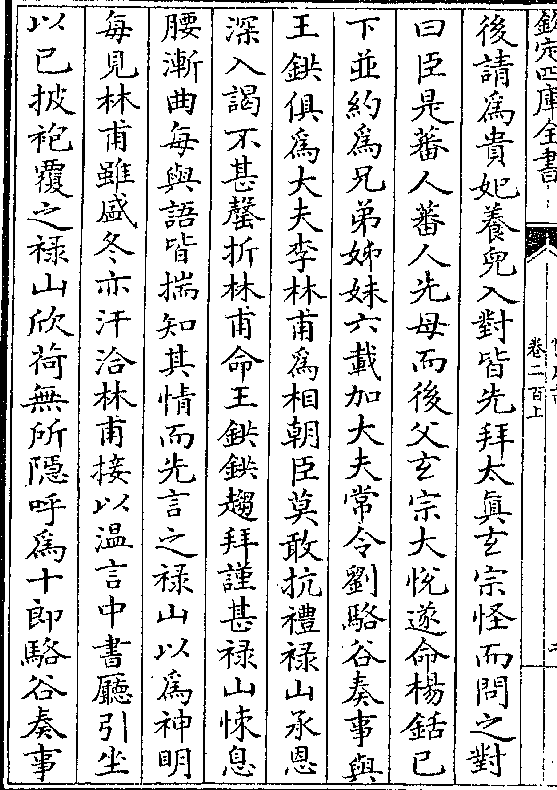 欽定四庫全書
卷二百上
後請為貴妃養兒入對皆先拜太真玄宗怪而問之對
曰臣是蕃人蕃人先母而後父玄宗大悅遂命楊銛已
下並約為兄弟姊妹六載加大夫常令劉駱谷奏事與
王鉷俱為大夫李林甫為相朝臣莫敢抗禮祿山承恩
深入謁不甚罄折林甫命王鉷鉷趨拜謹甚祿山悚息
腰漸曲每與語皆揣知其情而先言之祿山以為神明
每見林甫雖盛冬亦汗洽林甫接以溫言中書廳引坐
以已披袍覆之祿山欣荷無所隱呼為十郎駱谷奏事